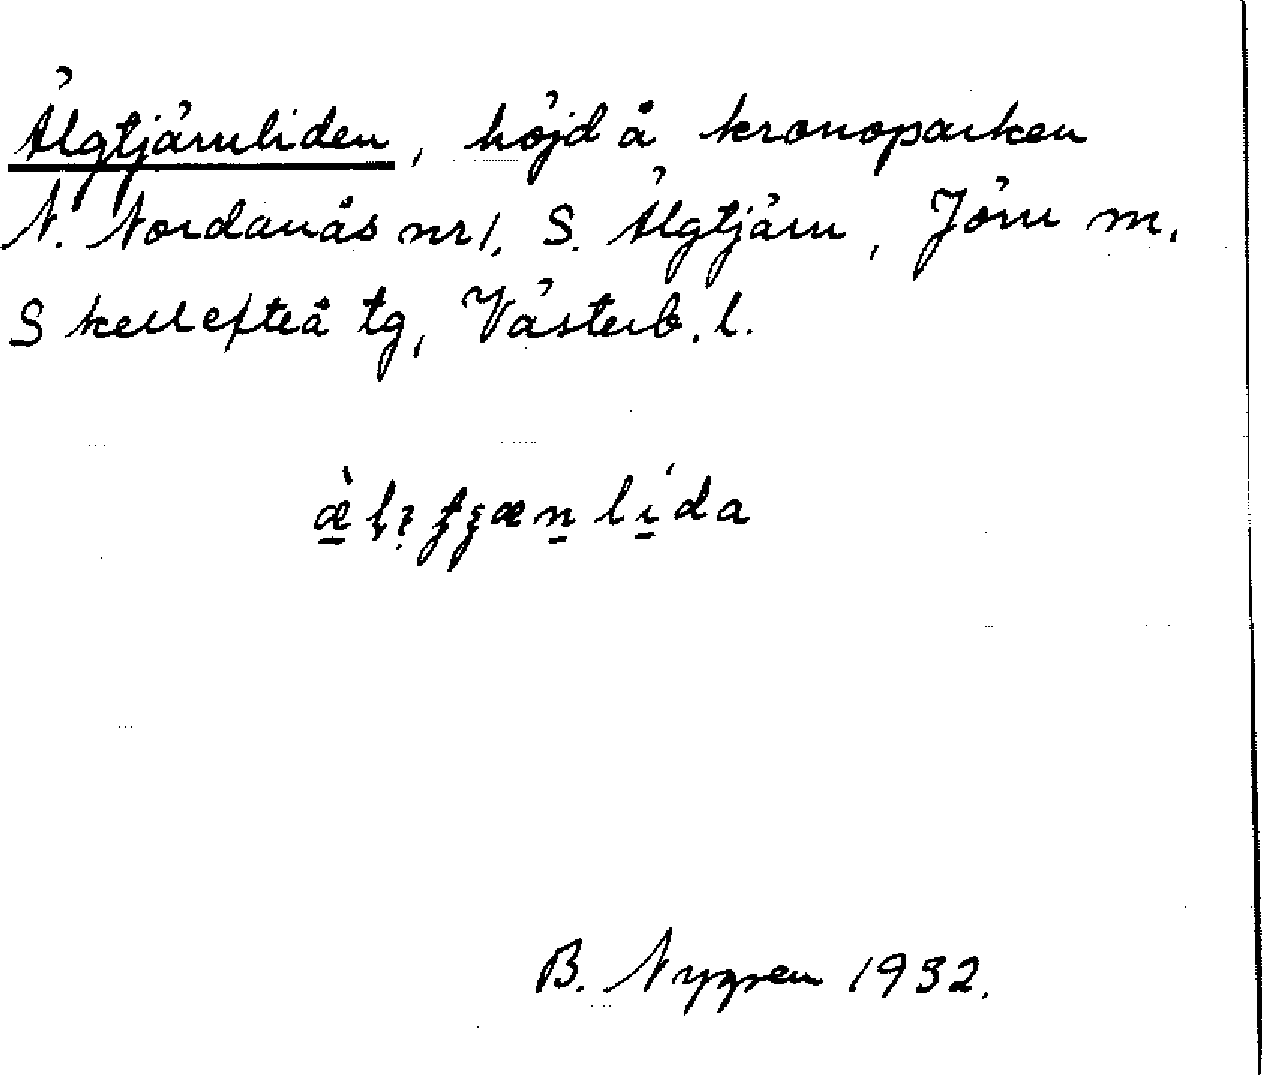 Älgtjärnliden, höjd å kronoparken
N. Nordanås nr 1, S. Älgtjärn, Jörn m.
Skellefteå tg, Västerb. l.
B. Nygren 1932.